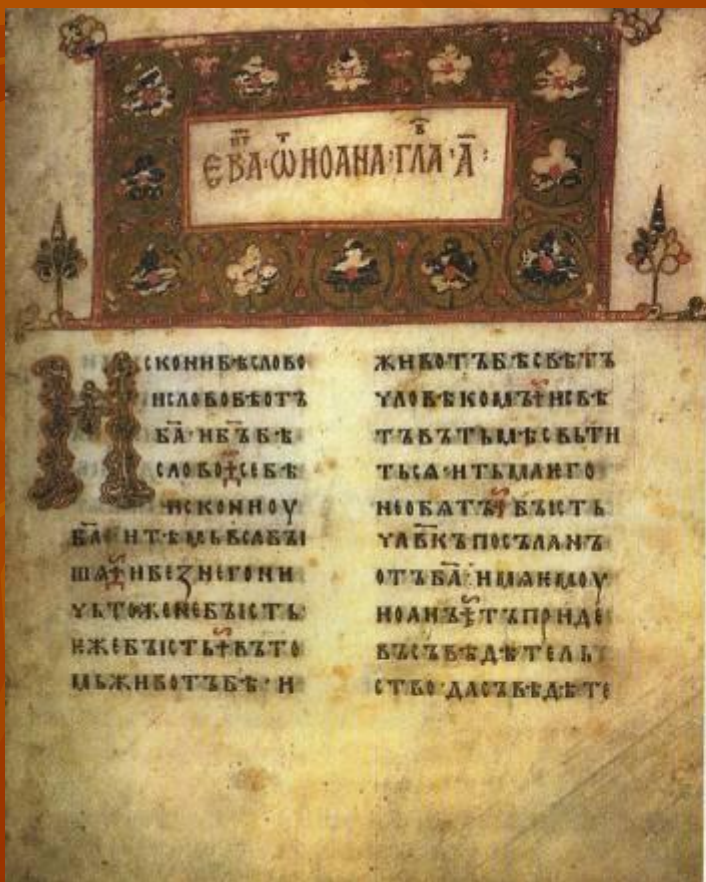 ЕВА҃ⷫ҇ⷮ·Ѡⷮ҇ИОАНА·ГЛАⷡ҇·А҃:
ИСКОНИБѢСЛОВО
ИСЛОВОБѢОТЪ
БА҃·ИБЪ҃БѢ
СЛОВО·СЕБѢ
ИСКОНИОУ
БА҃·ИТѢМЬВСАБЪІ
ШѦ·ИБЕЗНЕГОНИ
ЧЬТОЖЕНЕБЪІСТЬ
ЕЖЕБЪІСТЬ·ВЪТО
МЬЖИВОТЪБѢ·И
ЖИВОТЪБѢСВѢТЪ
ЧЛОВѢКОМЪ·ИСВѢ
ТЪВЪТЬМѢСВЬТИ
ТЬСѦ·ИТЬМАИГО
НЕОБѦТЪ·БЪІСТЬ
ЧЛВ҃КЪПОСЪЛАНЪ
ОТЪБА҃·ИМѦИМОУ
ИОАНЪ·ТЪПРИДЕ
ВЪСЪВѢДѢТЕЛЬ
СТВО·ДАСЪВѢДѢТЕ